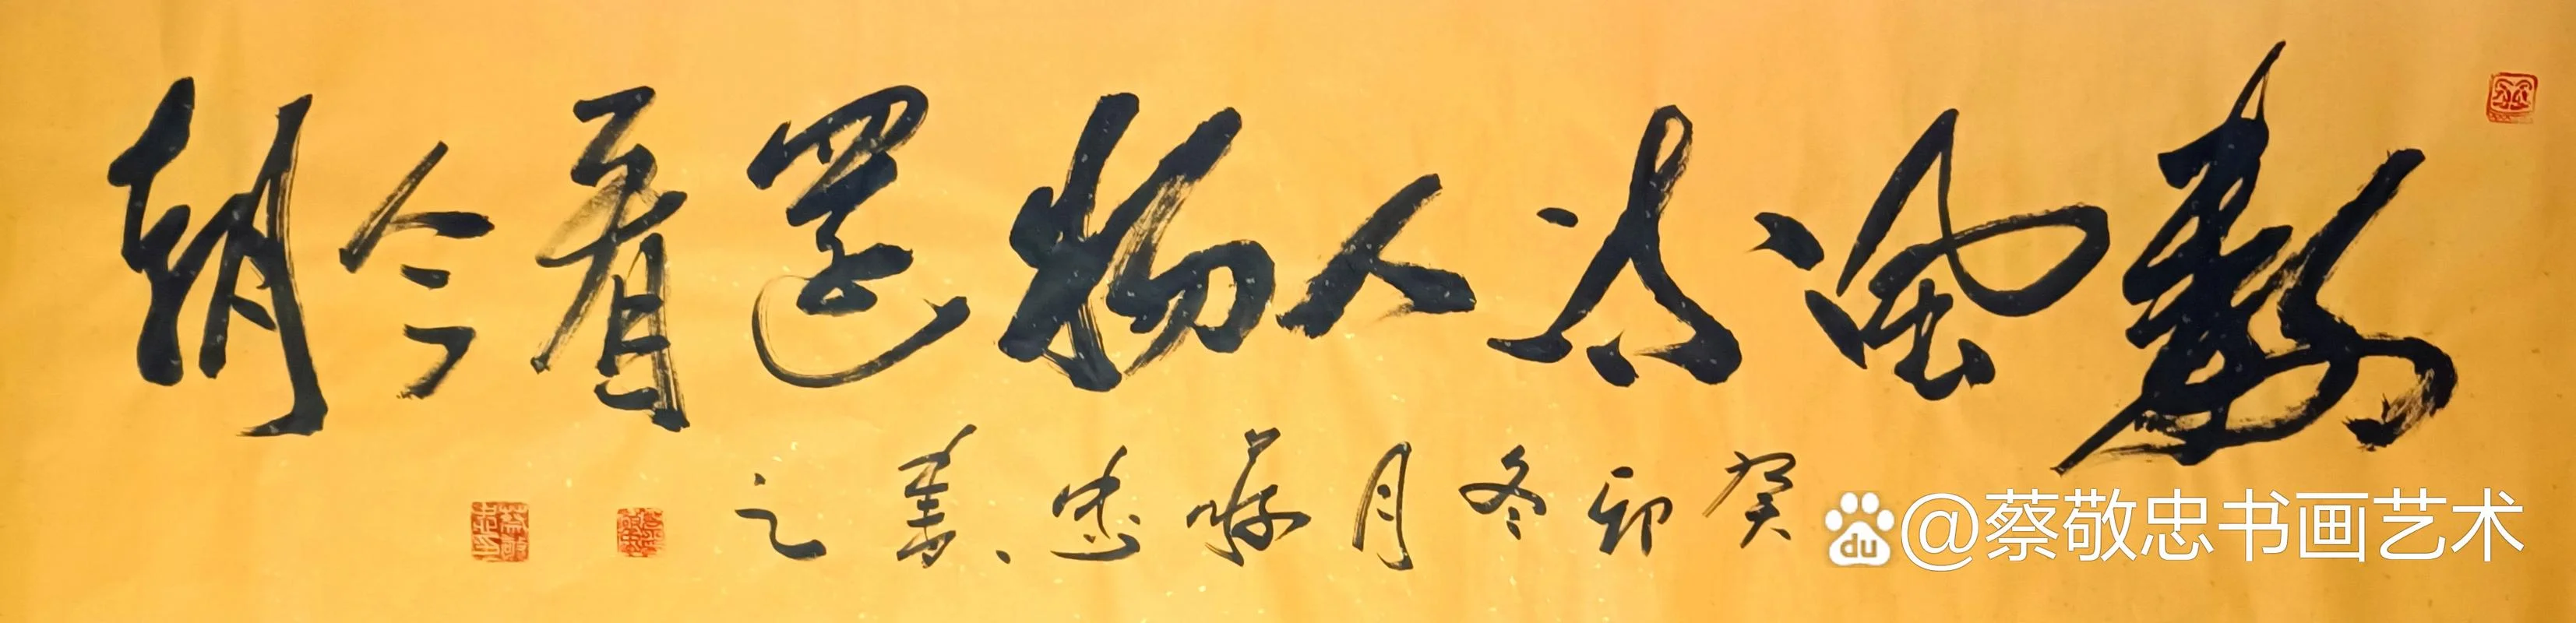 數風流人物還看今朝
癸卯冬月 敬忠書之
蔡敬忠印
du @蔡敬忠书画艺术